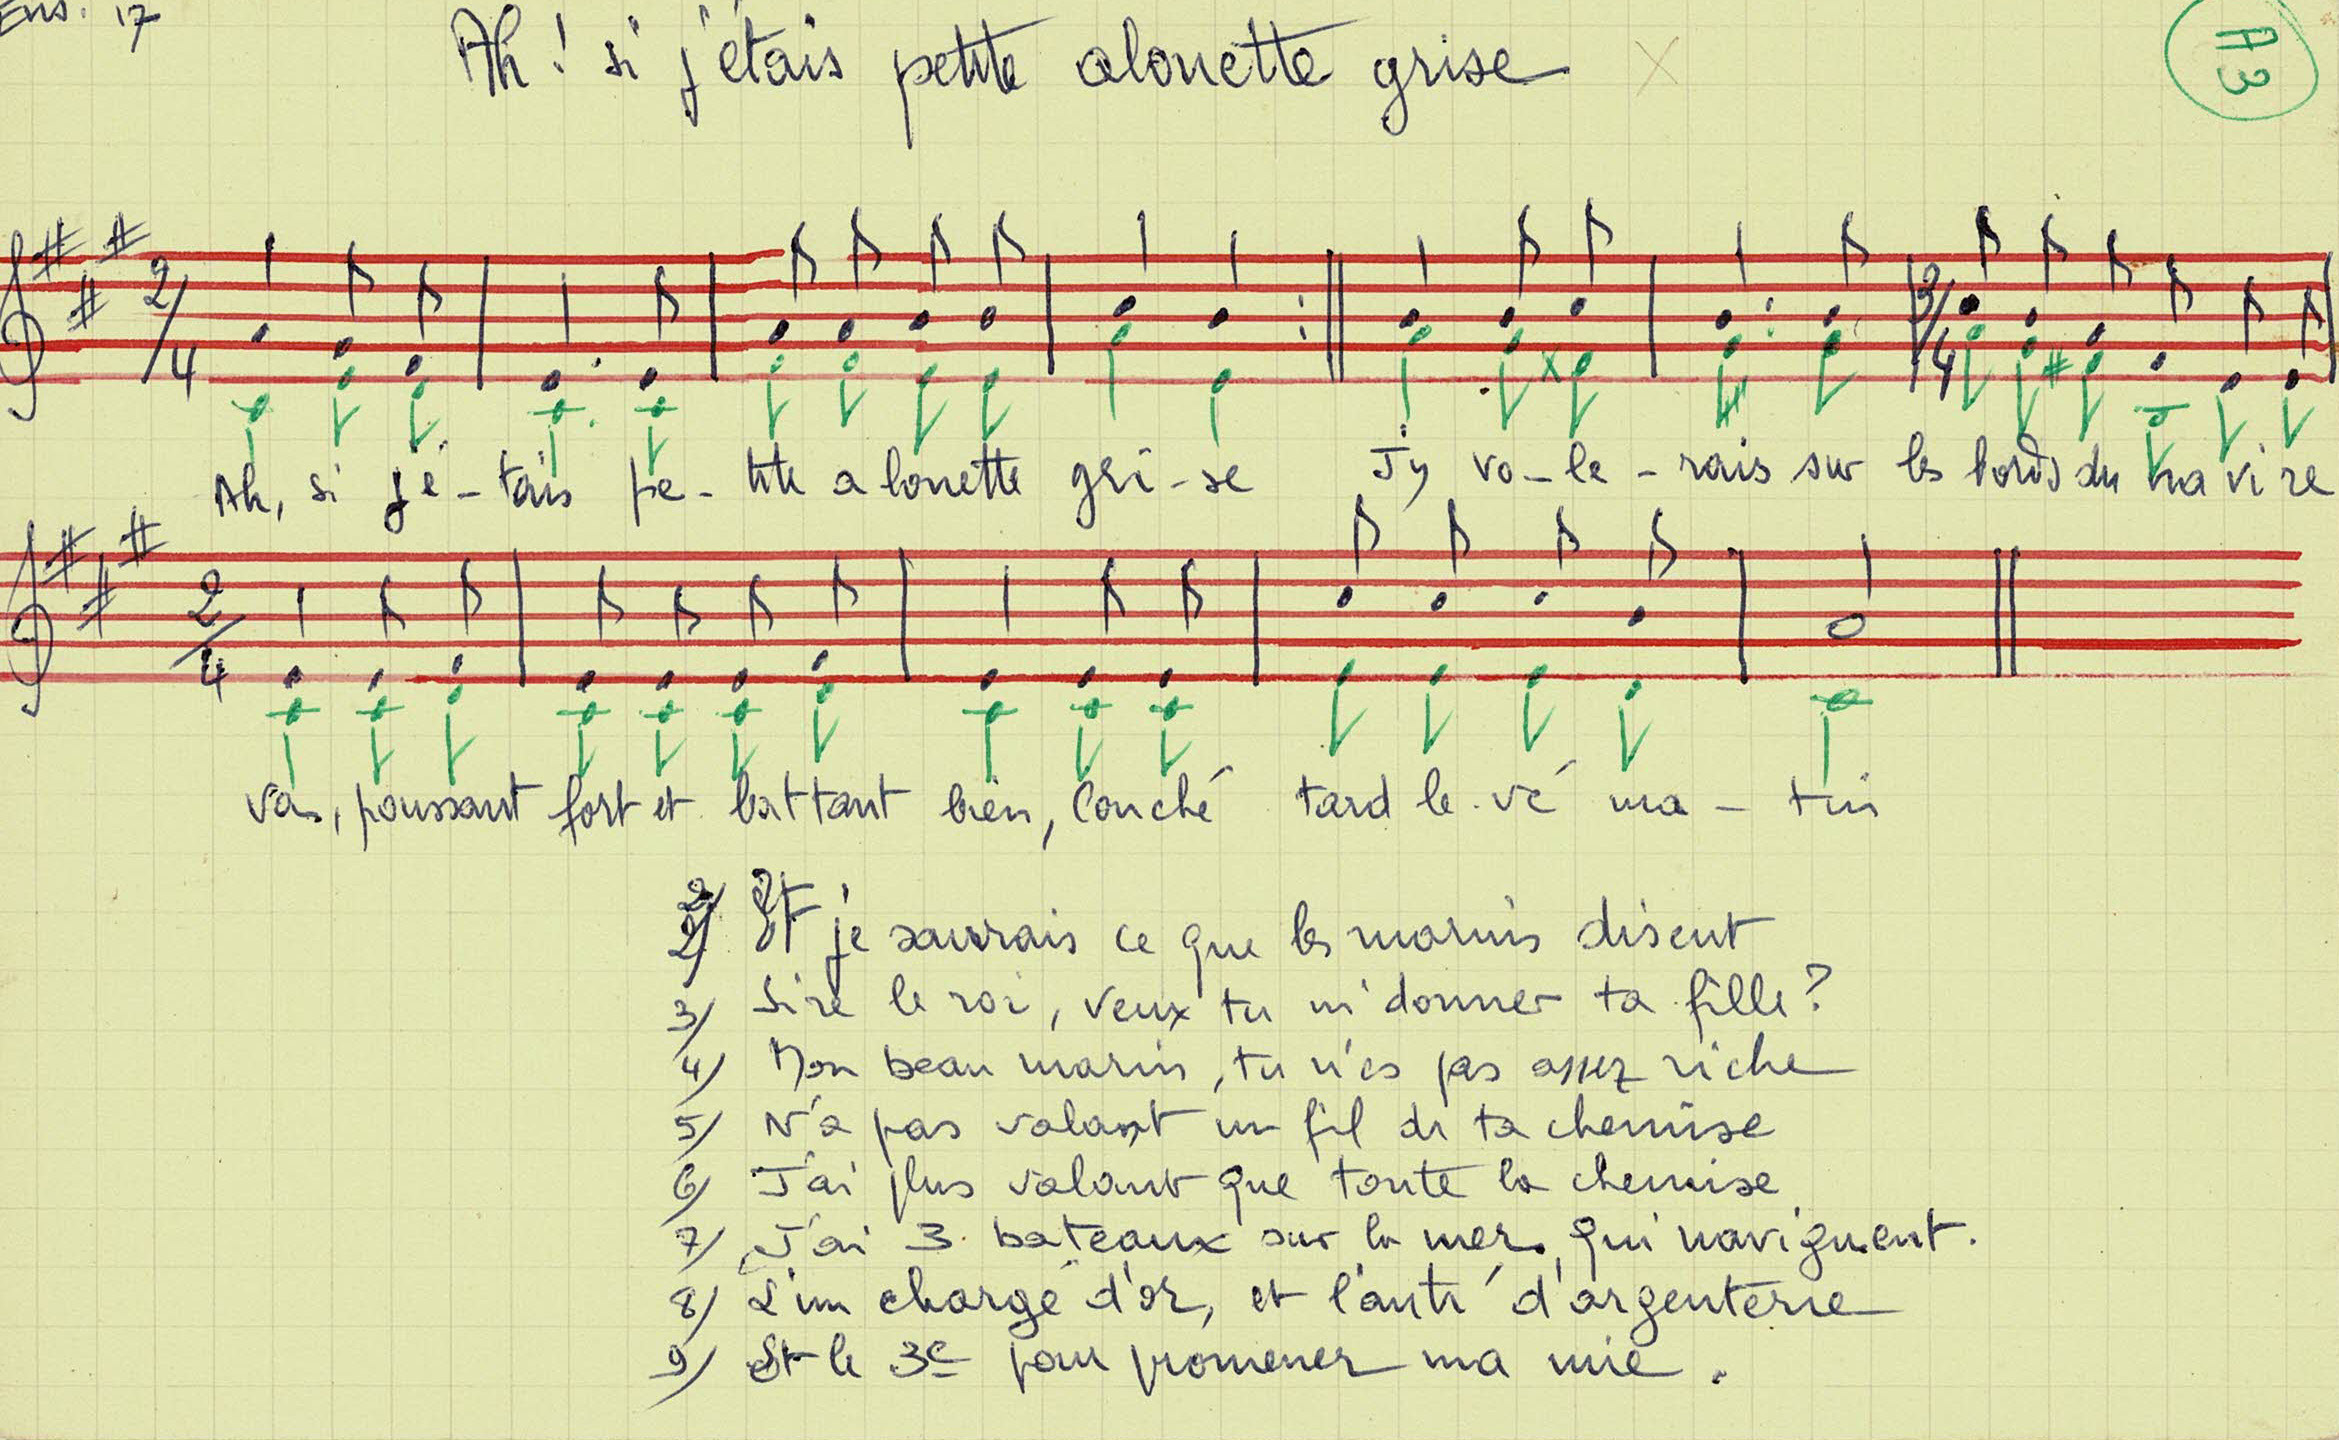 Ens. 17
Ah ! si j'étais petite alouette grise
A3
2/4
3/4
Ah, si j'é-tais pe-tite alouette gri-se J'y vo-le-rais sur les bords du navire
2/4
vas, poussant fort et battant bien, Couché tard le-vé ma-tin
2/ Et
2/ Et je saurais ce que les marins disent
3/ Sire le roi, veux tu m'donner ta fille?
4/ Mon beau marin, tu n'es pas assez riche
5/ N'a pas valant un fil de ta chemise
6/ J'ai plus valant que toute la chemise
7/ J'ai 3 bateaux sur la mer qui naviguent.
8/ L'un chargé d'or, et l'autr' d'argenterie
9/ Et le 3e pour promener ma mie.